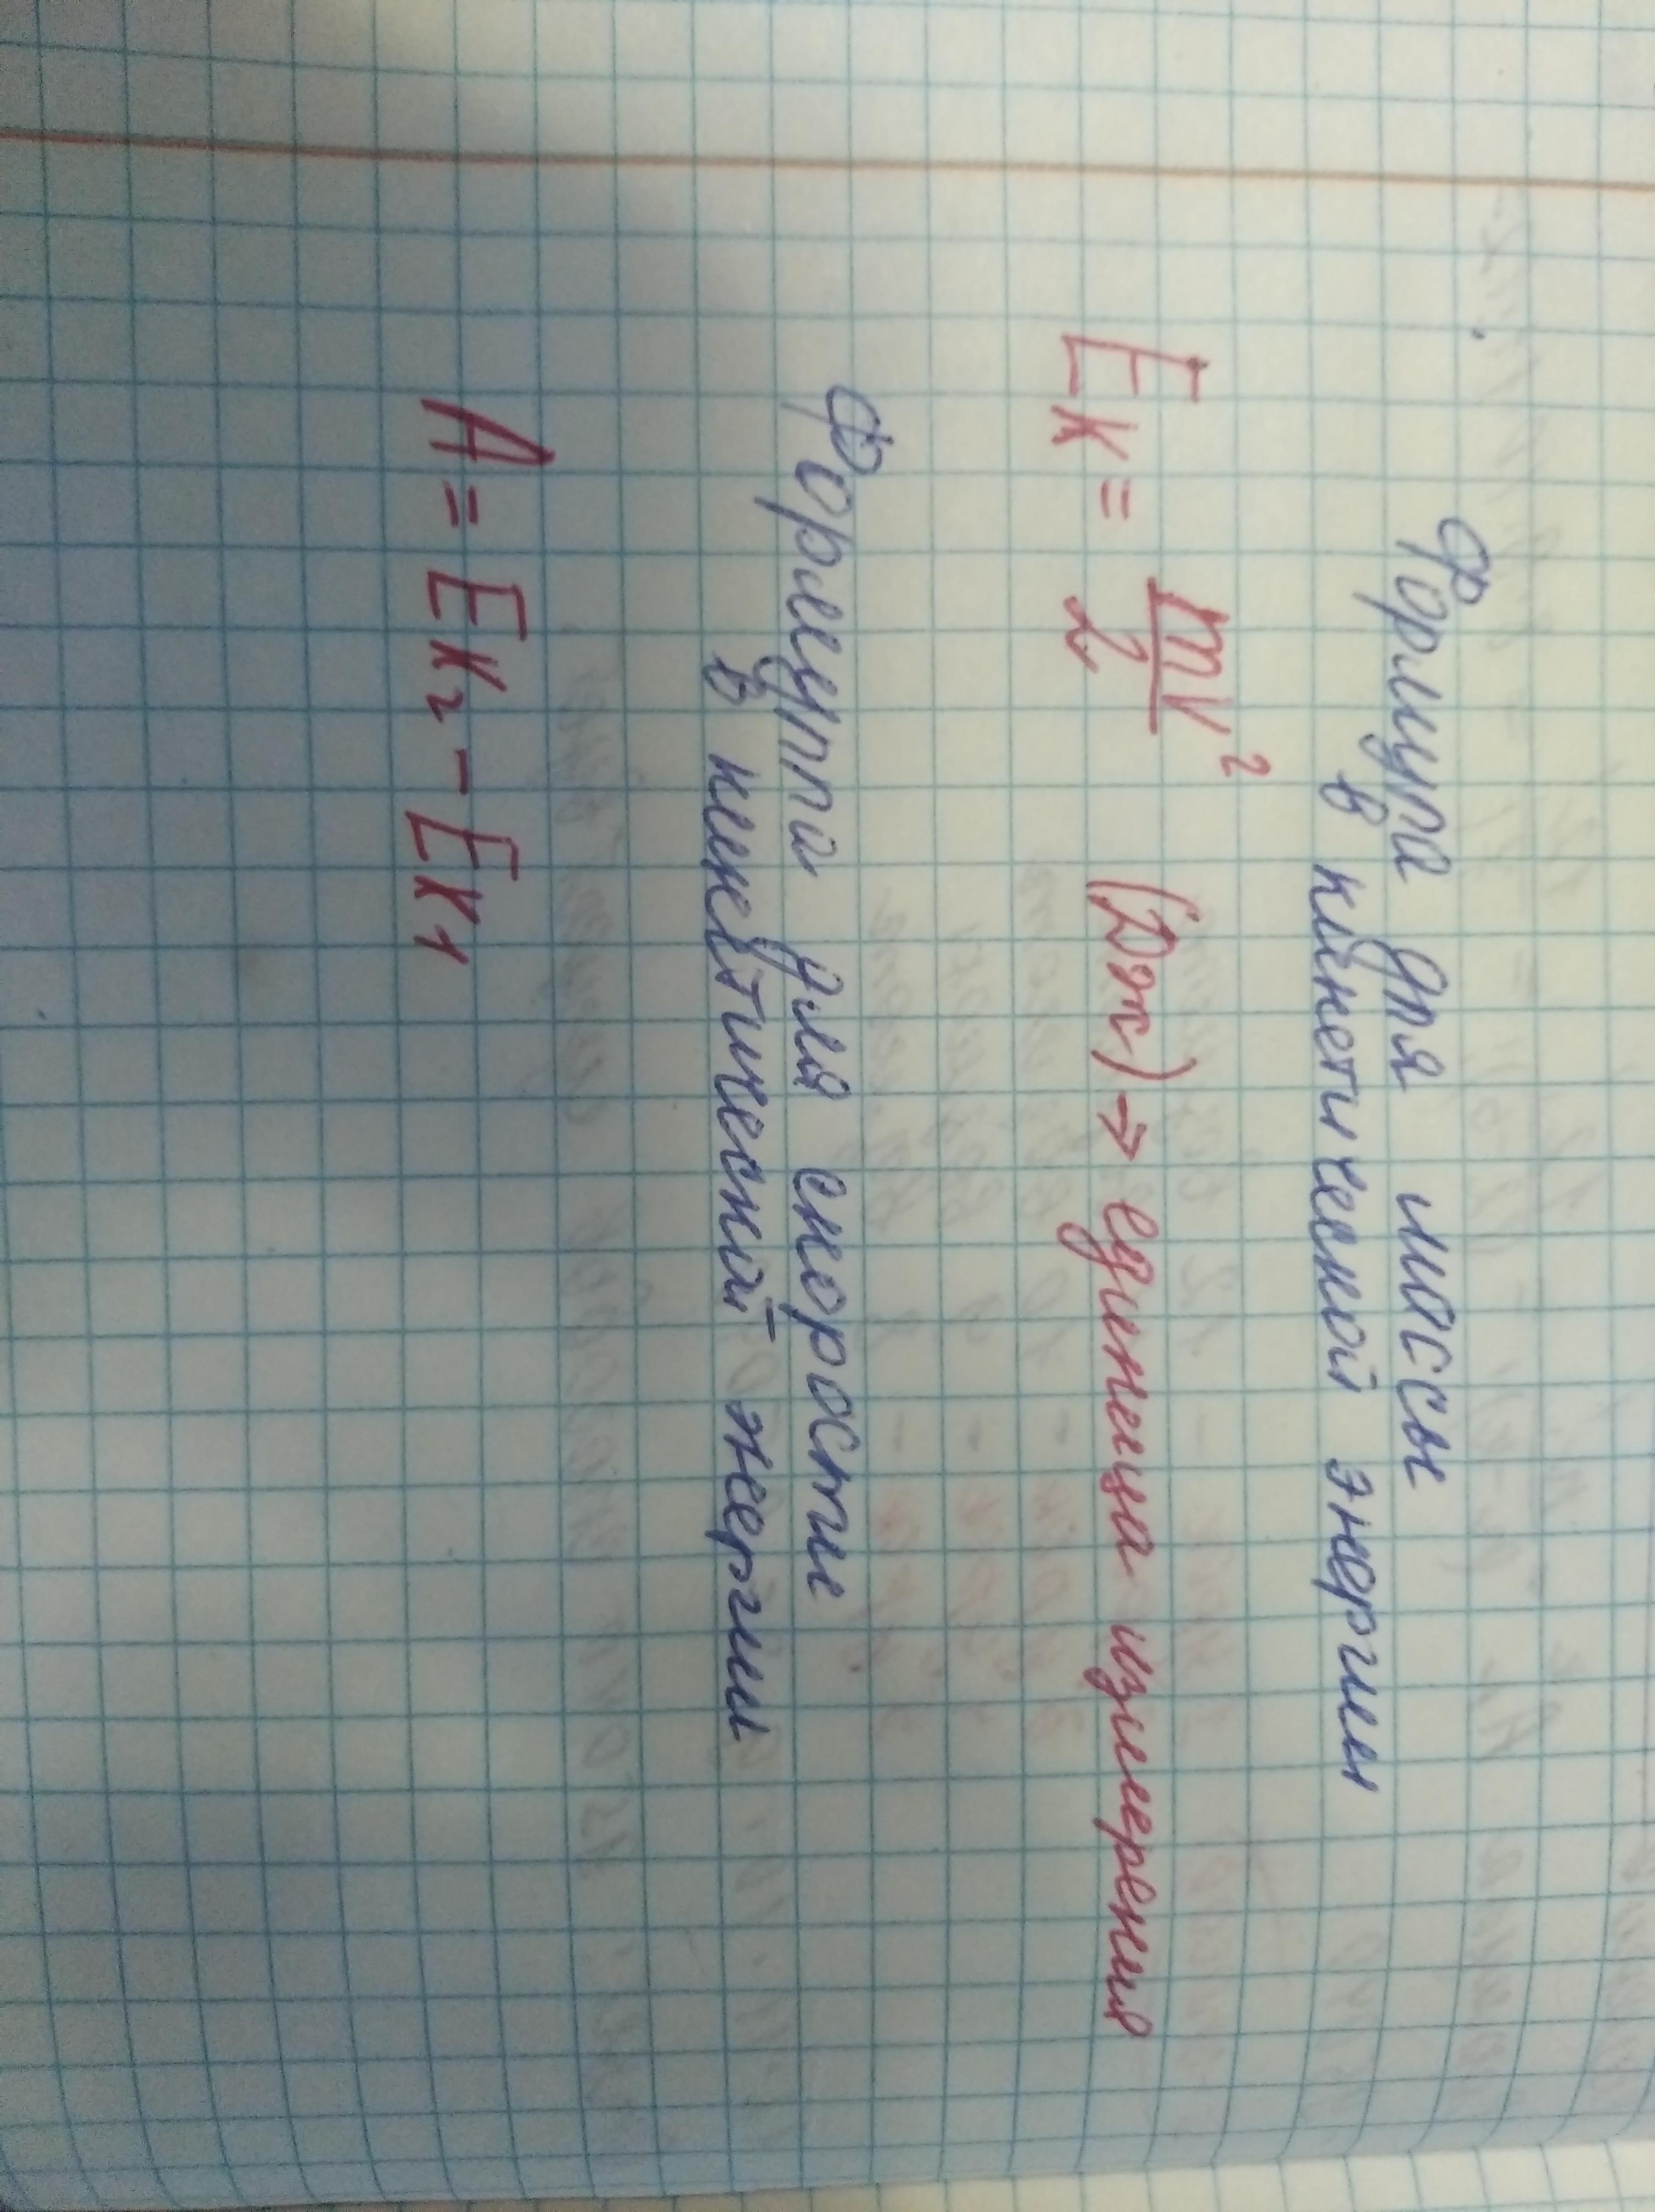 Формула для массы
в кинетической энергии
Eк = mv²/2 (Дж) → единица измерения
Формула для скорости
в кинетической энергии
A = Eк₂ - Eк₁